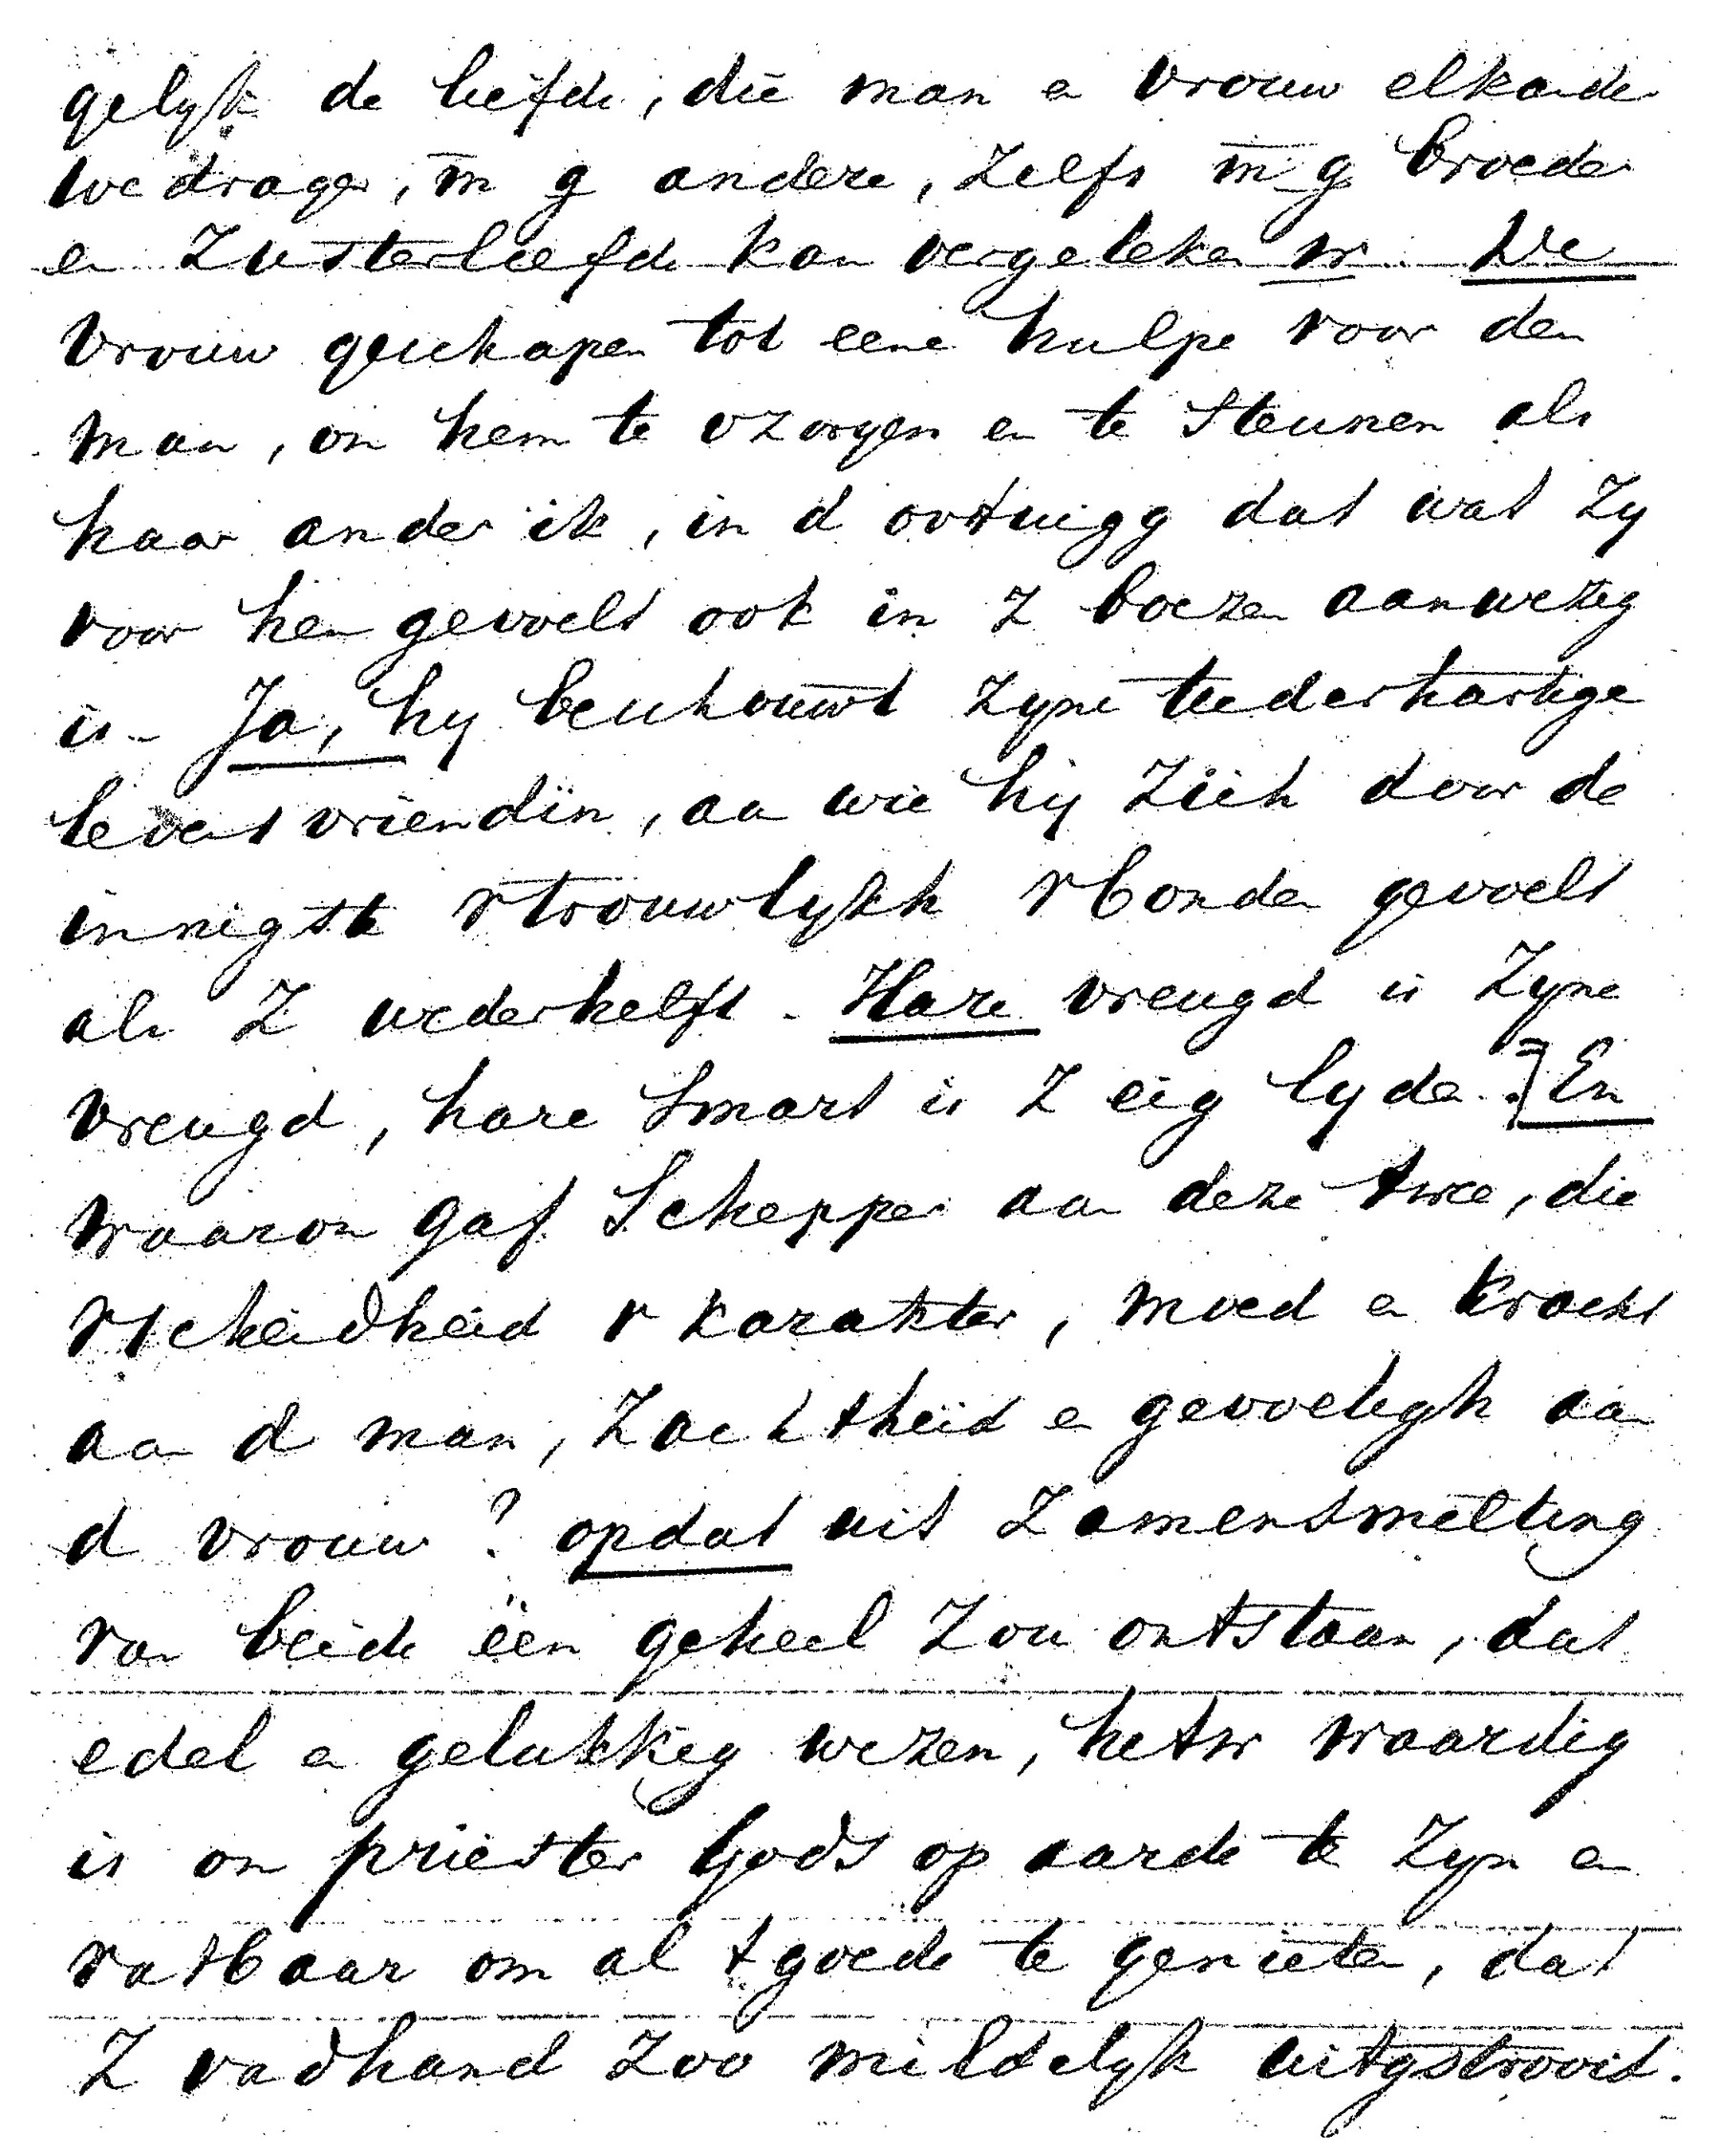 gelyk de liefde, die man e vrouw elkande
toedrage, m g andere, zelfs m g broede
en Zusterliefde kan vergeleke w. De
vrouw geschapen tot eene hulpe voor den
man, om hem te vzorgen en te steunen als
haar ander ik, in d ovtuigg dat wat zy
voor hem gevoelt ook in z boezem aanwezig
is - Ja, hy beschouwt zyne teederhartige
levensvriendin, aa wie hij zich door de
innigste vtrouwlykh vbonden gevoelt
als Z wederhelft. Hare vreugd is zyne
vreugd, hare smart is z eig lyde. } En
waarom gaf Schepper aan deze twee, die
vscheidheid v karakter, moed e kracht
aan d man, zachtheid e gevoeligh aan
d vrouw? opdat uit zamensmelting
van beide één geheel zou ontstaan, dat
edel e gelukkig wezen, hetw waardig
is om priester Gods op aarde te zyn en
vatbaar om al t goede te genieten, dat
Z vadhand zoo mildelyk uitgstrooit.